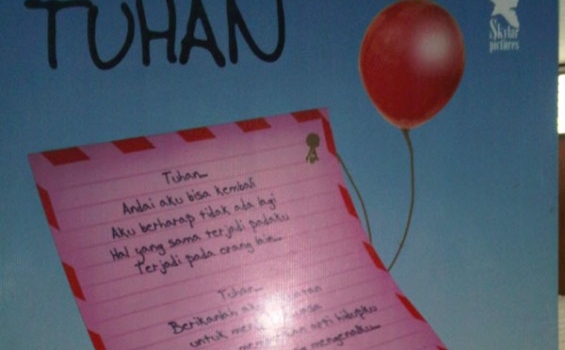 TUHAN
Skylar
pictures
Tuhan...
Andai aku bisa kembali
Aku berharap tidak ada lagi
Hal yang sama terjadi padaku
Terjadi pada orang lain...
Tuhan...
Berikanlah aku
untuk
arti hidupku
mengenalku...